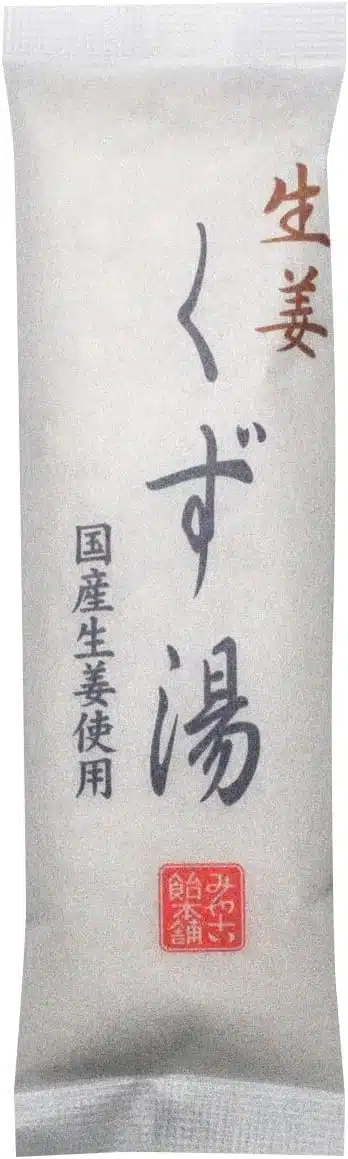 生姜
くず湯
国産生姜使用
みやこ
飴本舗